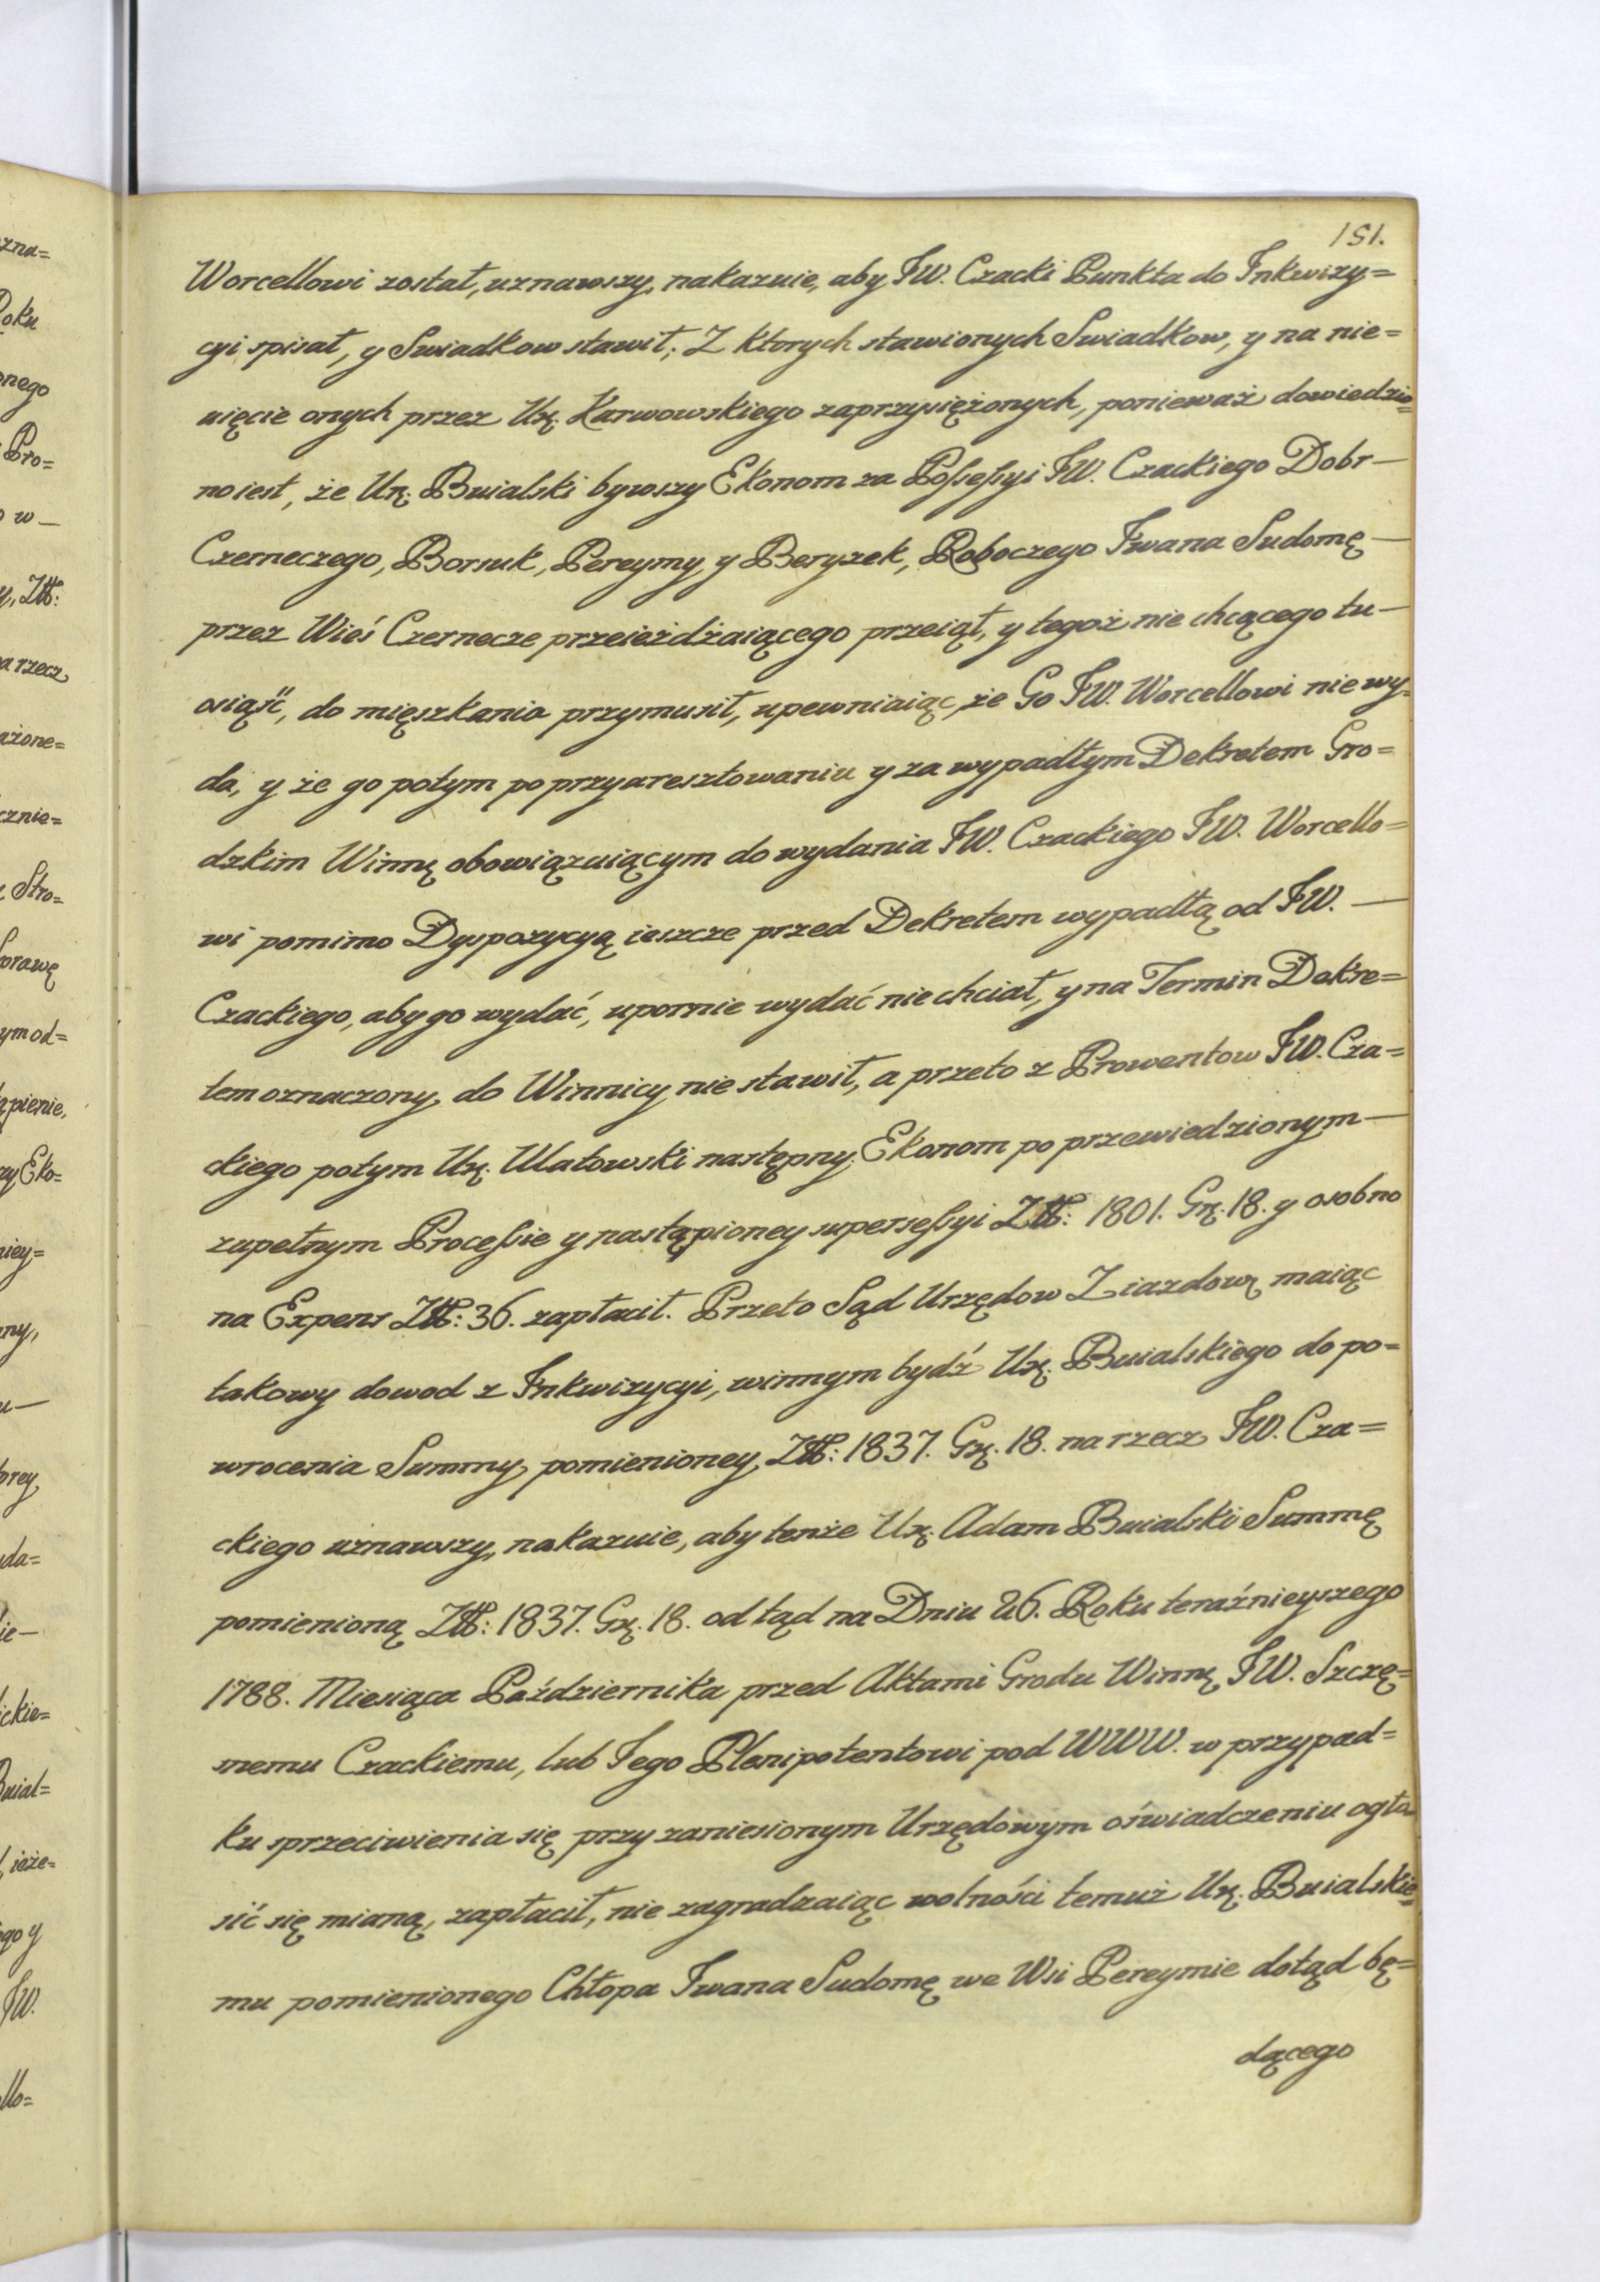 151.
Worcellowi został, uznawszy, nakazuie, aby JW. Czacki Punkta do Inkwizy=
cyi spisał, y Swiadkow stawił; Z ktorych stawionych Swiadkow, y na nie=
uięcie onych przez Ur. Karwowskiego zaprzysiężonych, ponieważ dowiedzio=
no iest, że Ur. Buialski bywszy Ekonom za Possessyi JW. Czackiego Dobr —
Czerneczego, Borsuk, Pereymy, y Beryzek, Roboczego Iwana Sudomę —
przez Wieś Czernecze przeieżdżaiącego przeiął, y tegoż nie chcącego tu —
osiąść, do mięszkania przymusił, upewniaiąc, że Go JW. Worcellowi nie wy=
da, y że go potym po przyaresztowaniu y za wypadłym Dekretem Gro=
dzkim Winnę obowiązuiącym do wydania JW. Czackiego JW. Worcello=
wi pomimo Dyspozycyą ieszcze przed Dekretem wypadłą od JW. —
Czackiego, aby go wydać, upornie wydać nie chciał, y na Termin Dekre=
tem oznaczony, do Winnicy nie stawił, a przeto z Prowentow JW. Cza=
ckiego potym Ur. Ulatowski następny Ekonom po przewiedzionym —
zupełnym Processie y nastąpioney supersessyi Złł: 1801. Gr. 18. y osobno
na Expens Złł: 36. zapłacił. Przeto Sąd Urzędow Ziazdowy maiąc
takowy dowod z Inkwizycyi, winnym bydź Ur. Buialskiego do po=
wrocenia Summy pomienioney, Złł: 1837. Gr. 18. na rzecz JW. Cza=
ckiego uznawszy, nakazuie, aby tenże Ur. Adam Buialski Summę
pomienioną Złł: 1837. Gr. 18. od tąd na Dniu 26. Roku teraźnieyszego
1788. Miesiąca Października przed Aktami Grodu Winnę JW. Szczę=
snemu Czackiemu, lub Jego Plenipotentowi pod WWW. w przypad=
ku sprzeciwienia się przy zaniesionym Urzędowym oświadczeniu ogło=
sić się mianą, zapłacił, nie zagradzaiąc wolności temuż Ur. Buialskie=
mu pomienionego Chłopa Iwana Sudomę we Wsi Pereymie dotąd bę=
dącego